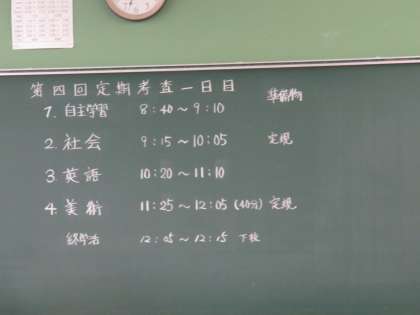 第四回定期考査一日目
準備物
1. 自主学習 8:40～9:10
2. 社会 9:15～10:05 定規
3. 英語 10:20～11:10
4. 美術 11:25～12:05 (40分) 定規
終学活 12:05～12:15 下校